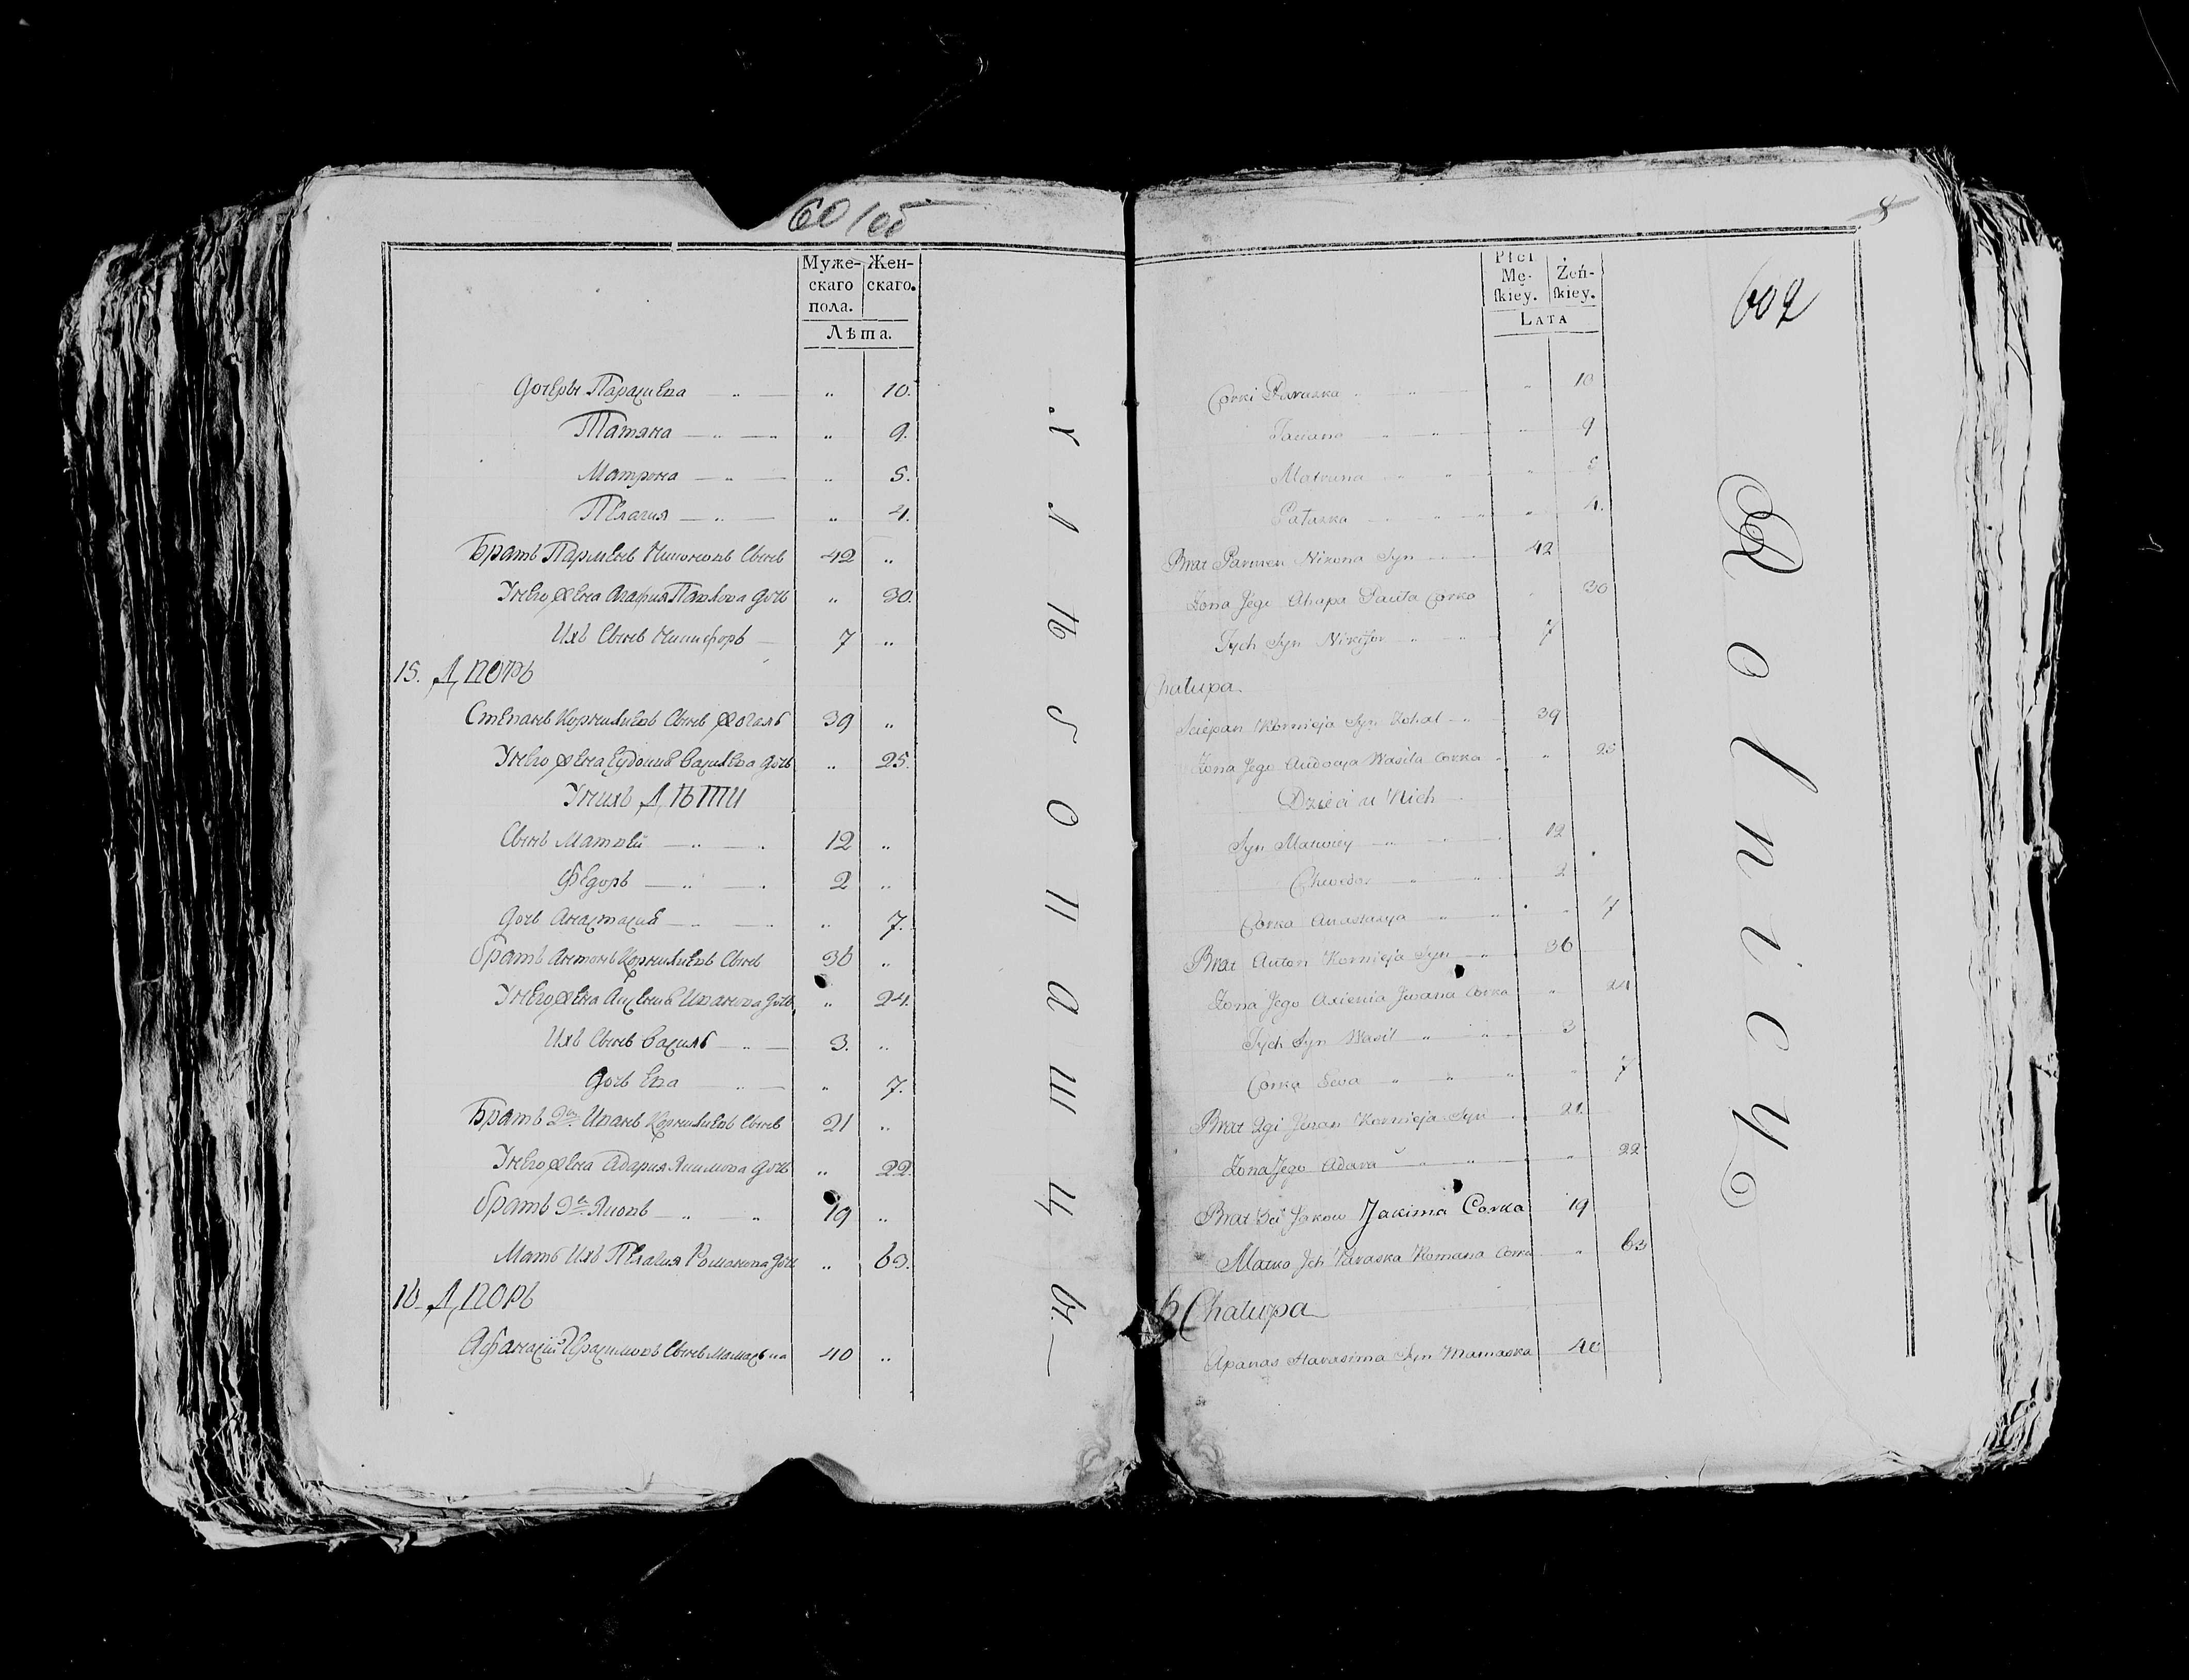 60/об
Муже-
скаго
пола.
Жен-
скаго.
Лѣта.
Дочери Парасцева 10.
Татяна 9.
Матрона 5.
Пелагия 4.
Братъ Парменъ Никоновъ Сынъ 42
Унего жена Агафия Павлова дочь 30.
Ихъ Сынъ Никифоръ 7
15. Дворъ
Степанъ Корниліевъ Сынъ Жогаль 39
Унего жена Еудокия Васильева дочь 25.
Унихъ Дѣти
Сынъ Матвѣй 12
Федоръ 2
Дочь Анастасия 7.
Братъ Антонъ Корниліевъ Сынъ 36
Унего жена Аксения Иванова дочь 24.
Ихъ Сынъ Василь 3.
Дочь Ева 7.
Братъ 2й Иванъ Корниліевъ Сынъ 21
Унего жена Адария Якимова дочь 22.
Братъ 3й Яковъ 19
Мать Ихъ Пелагия Романова дочь 63.
16. Дворъ
Афанасій Герасимовъ Сынъ 40
8
602
Płci
Mę-
ſkiey.
Żeń-
ſkiey.
LATA
Corki Paraska 10
Taciana 9
Matruna 5
Pałaska 4.
Brat Parmen Nikona Syn 42
Zona Jego Ahapa Pauła Corka 30
Jych Syn Nikifor 7
Chałupa
Sciepan Kornieja Syn Kohal 39
Zona Jego Audocya Wasila Corka 25
Dzieci u Nich
Syn Matwiey 12
Chwedor 2
Corka Anastazya 7
Brat Anton Kornieja Syn 36
Zona Jego Axienia Jwana Corka 24
Jych Syn Wasil 3
Corka Ieva 7
Brat 2gi Jwan Kornieja Syn 21
Zona Jego Adara 22
Brat 3ci Jakow Jakima Corka 19
Matka Jch Paraska Romana Corka 63
6 Chałupa
Apanas Harasima Syn Mamaska 40
Rolnicy